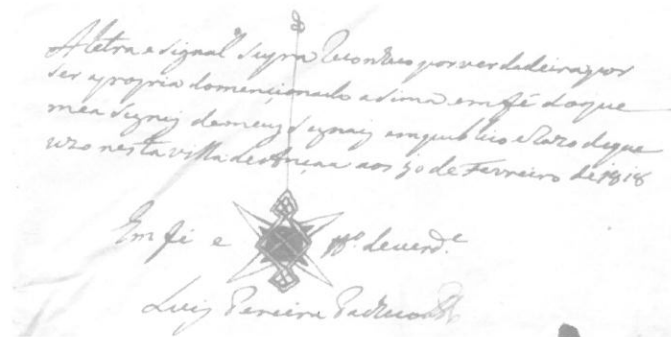 A letra e Signal supra Reconheço por verdadeira por
ser apropria do mencionado asima em fé do que
me a Signey de meus Signais em publico e Razo de que
uzo nesta villa de aos 30 de Fevreiro de 1818
Em fé e de verd.e
Luiz Pereira Pacheco